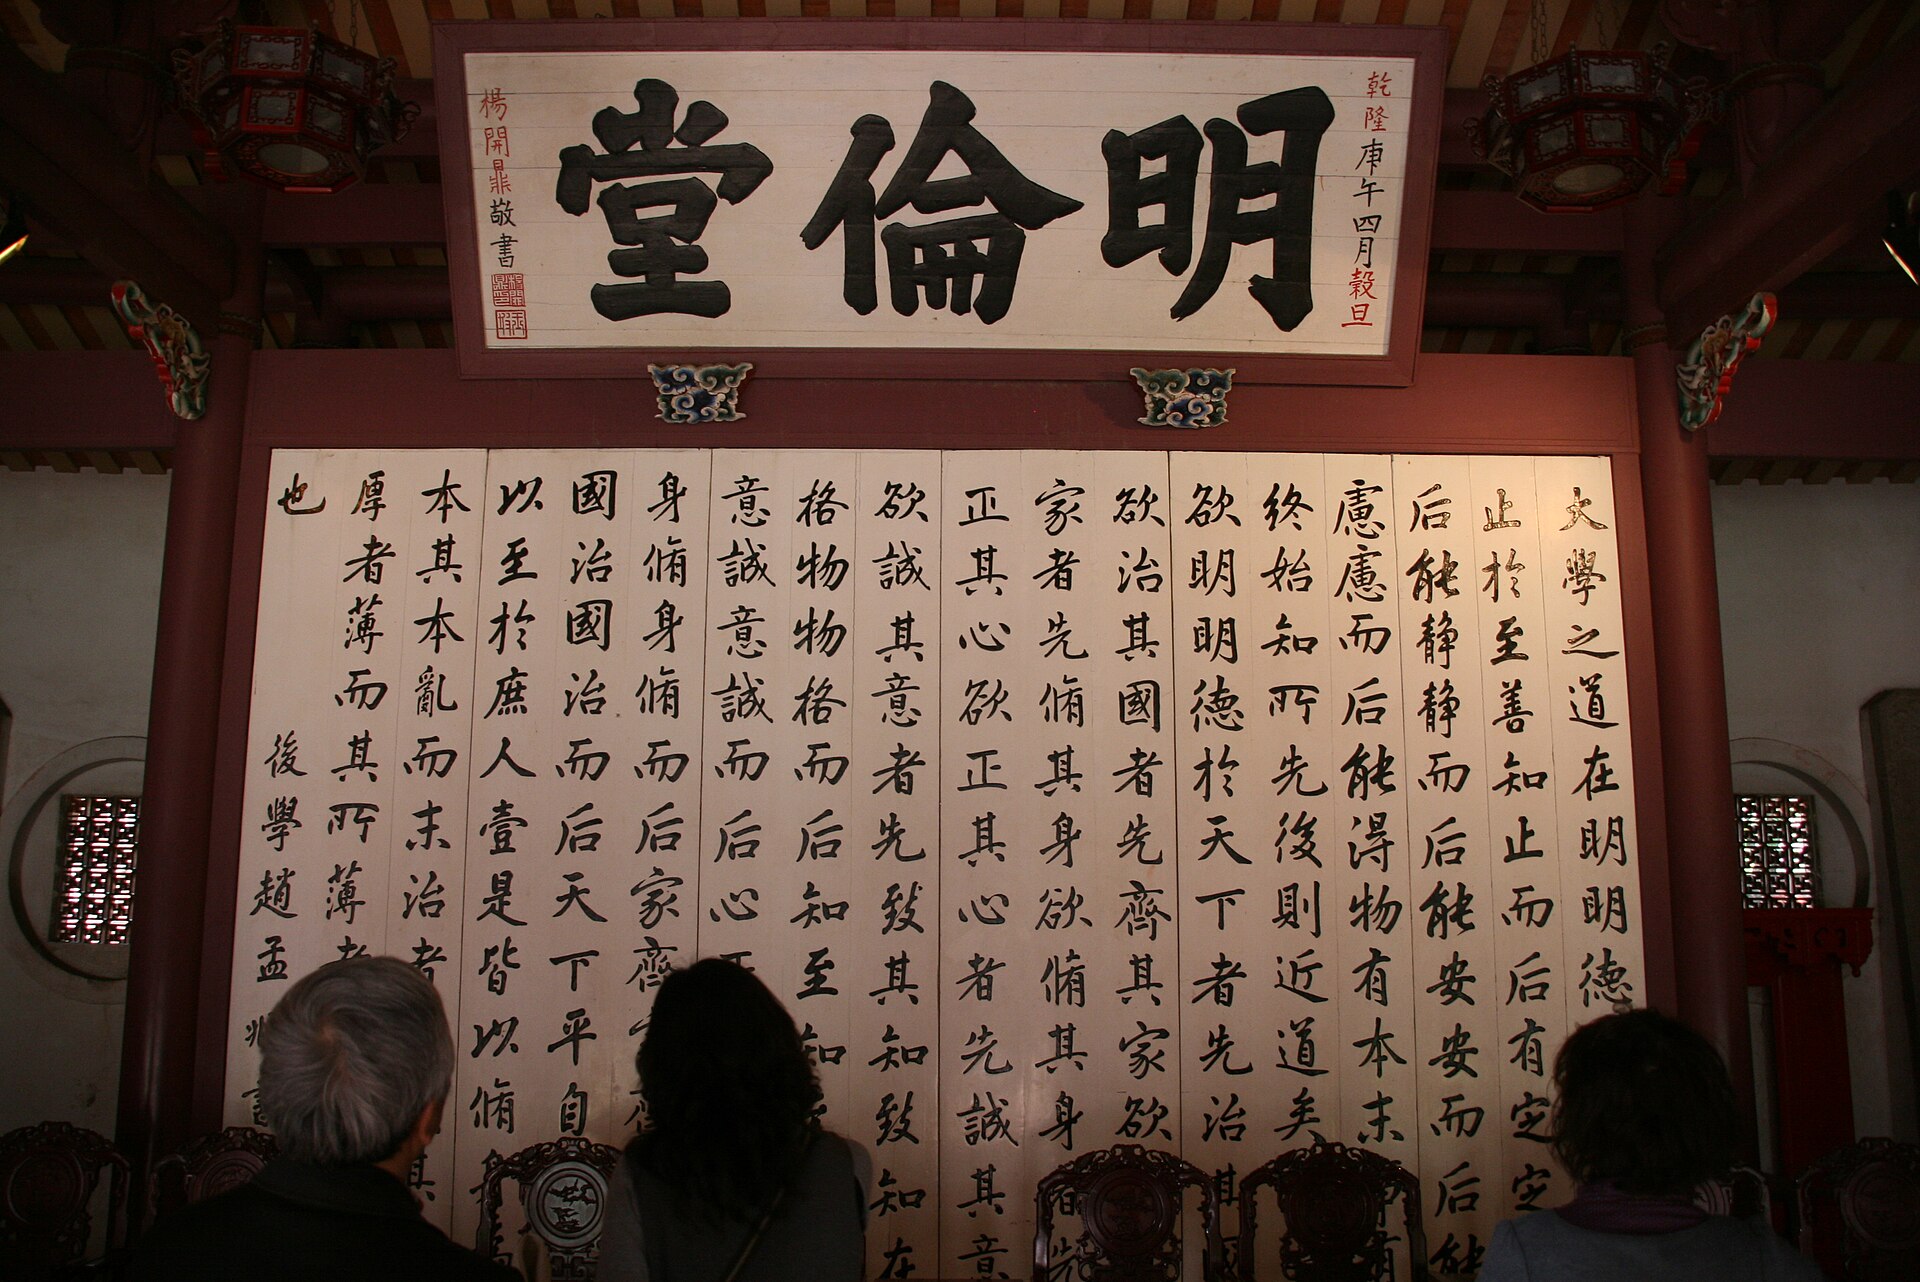 乾隆庚午四月穀旦
明倫堂
楊開鼎敬書
大學之道在明明德
止於至善知止而后有定定
后能静静而后能安安而后能
慮慮而后能得物有本末
終始知所先後則近道矣
欲明明德於天下者先治其國
欲治其國者先齊其家欲
家者先脩其身欲脩其身者先
正其心欲正其心者先誠其意
欲誠其意者先致其知致知在
格物物格而后知至知
意誠意誠而后心正
身脩身脩而后家齊家齊
國治國治而后天下平自
以至於庶人壹是皆以脩身
本其本亂而末治者其
厚者薄而其所薄者
也
後學趙孟書